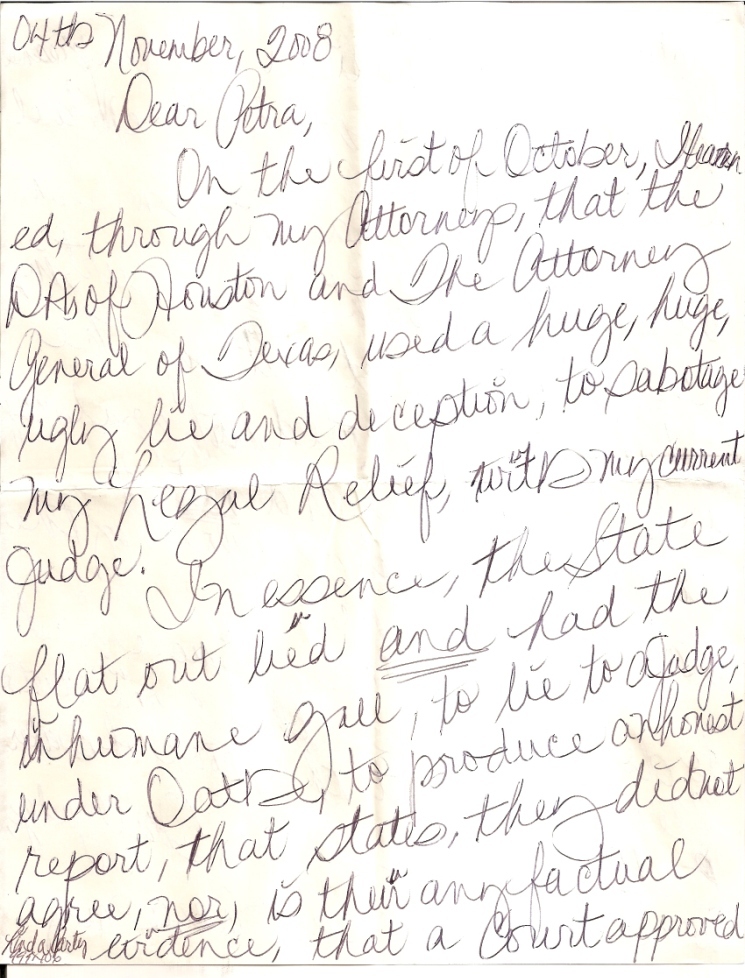 04th November, 2008
Dear Petra,
On the first of October, I learn
ed, through my Attorneys, that the
DA of Houston and The Attorney
General of Texas, used a huge, huge,
ugly lie and deception, to sabotage
my Legal Relief, with my current
Judge. In essence, the State
flat out lied and had the
inhumane gall, to lie to a Judge,
under Oath, to produce an honest
report, that states, they did not
agree, nor, is their any factual
evidence, that a Court approved
Linda Carty